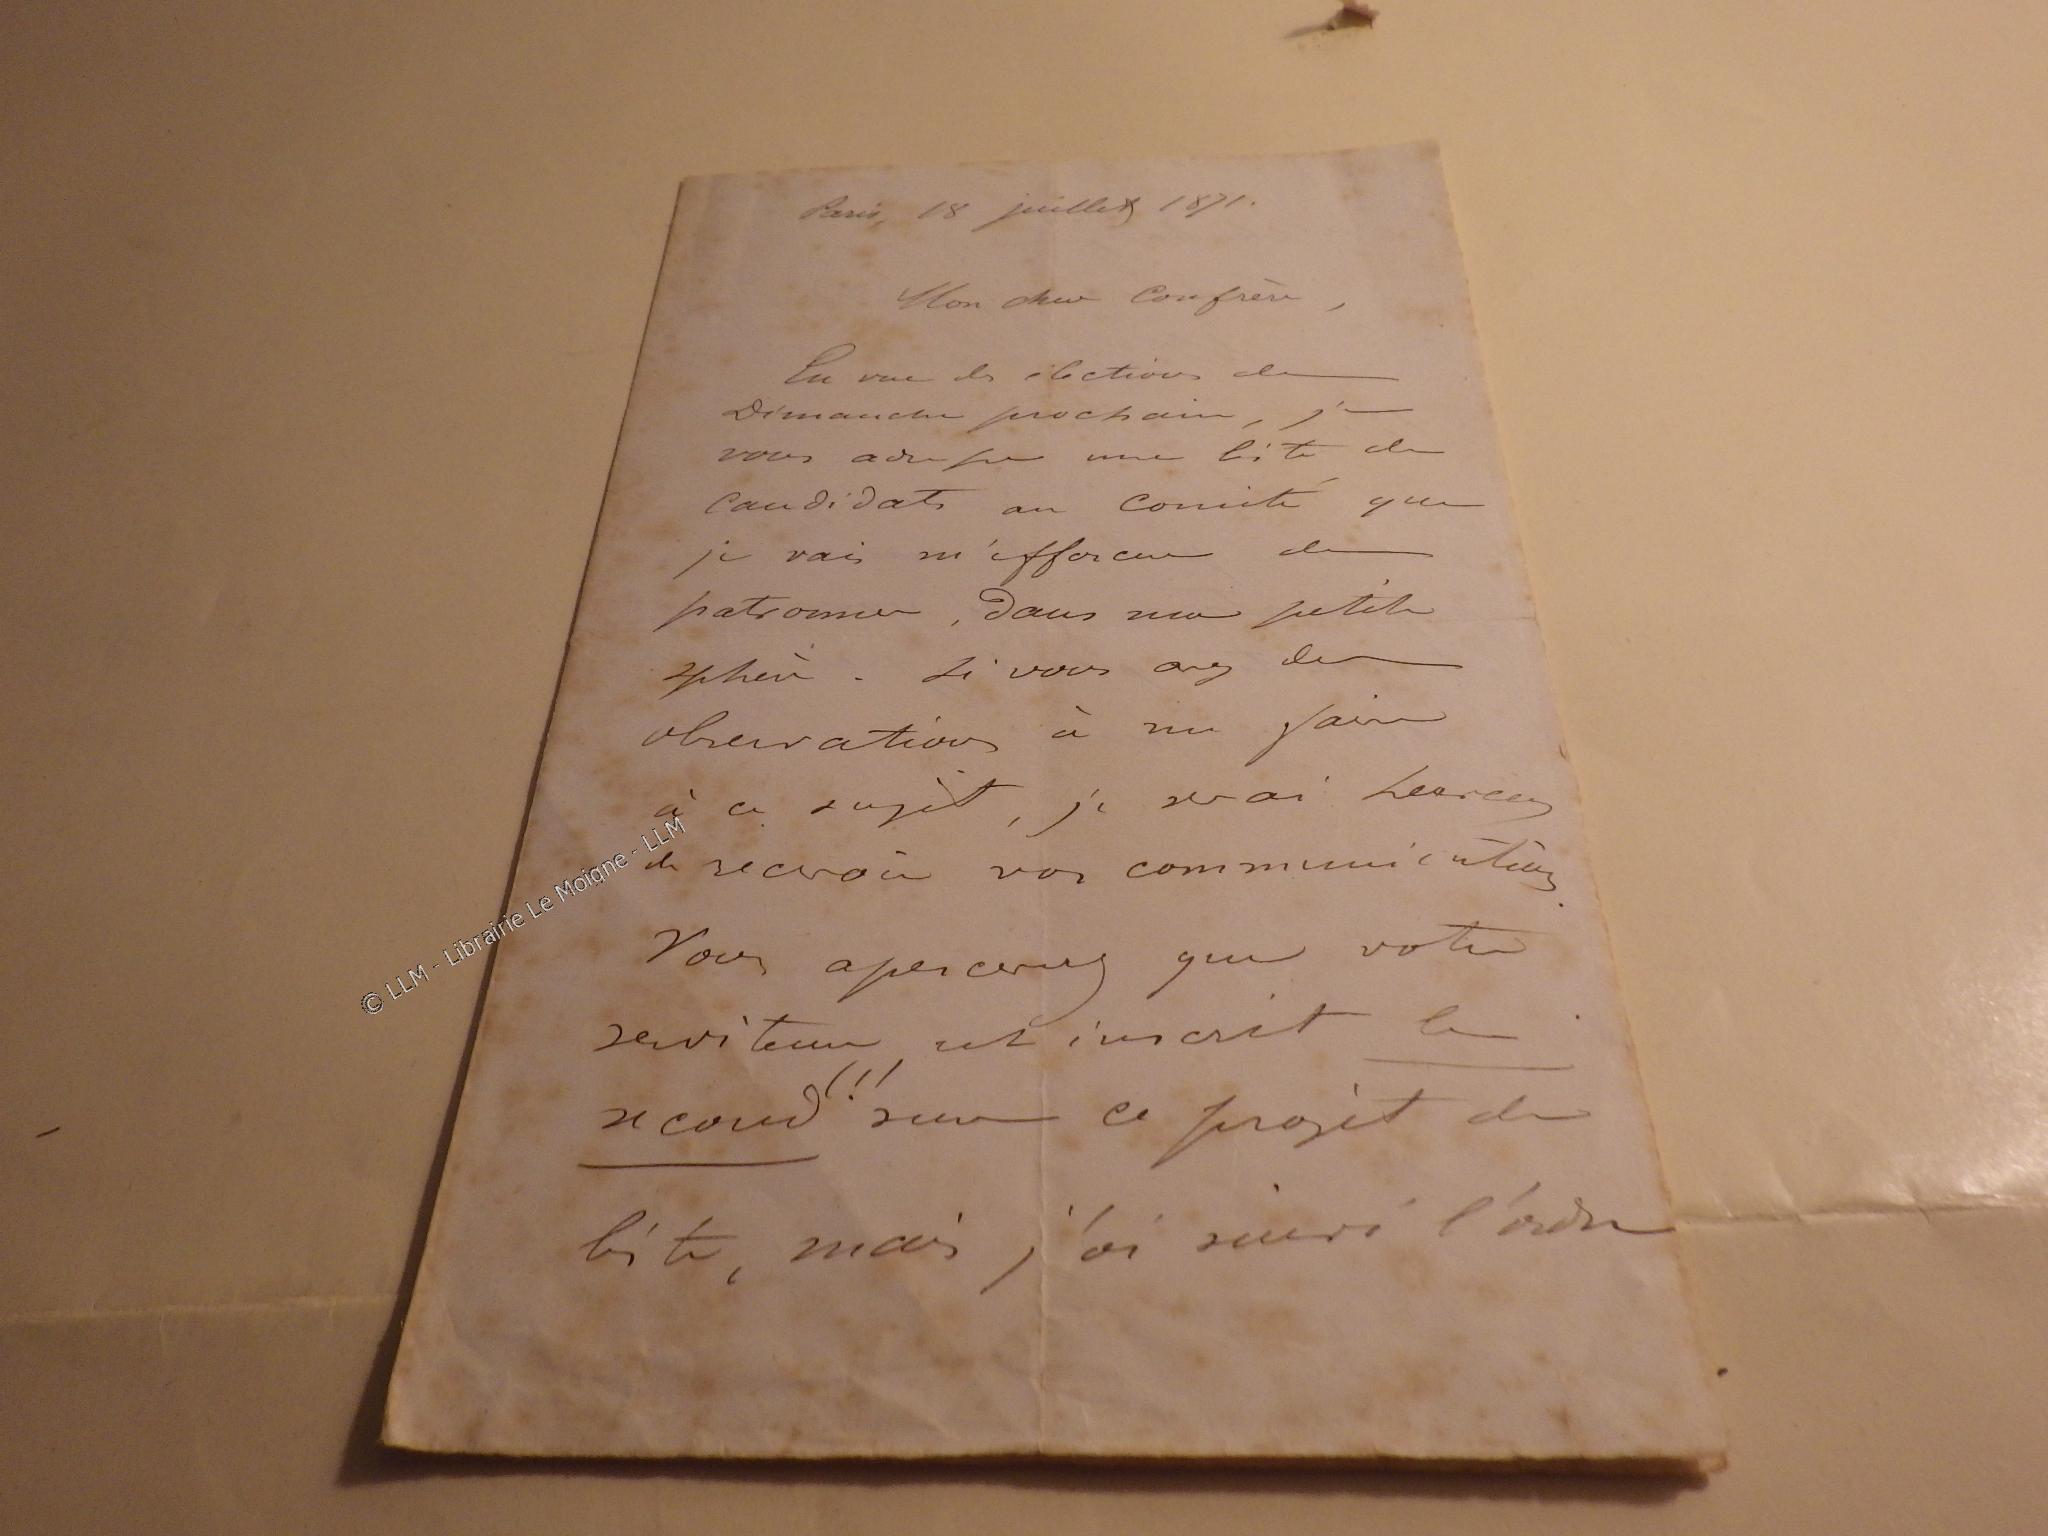 Paris, 18 juillet 1871.
Mon cher Confrère,
En vue des élections de
Dimanche prochain, je
vous adresse une liste de
candidats au Comité que
je vais m'efforcer de
patronner, dans ma petite
sphère. Si vous avez des
observations à me faire
à ce sujet, je serai heureux
de recevoir vos communications.
Vous apercevrez que votre
serviteur est inscrit le
second!!! sur ce projet de
liste, mais j'ai suivi l'ordre
© LLM - Librairie Le Moigne - LLM